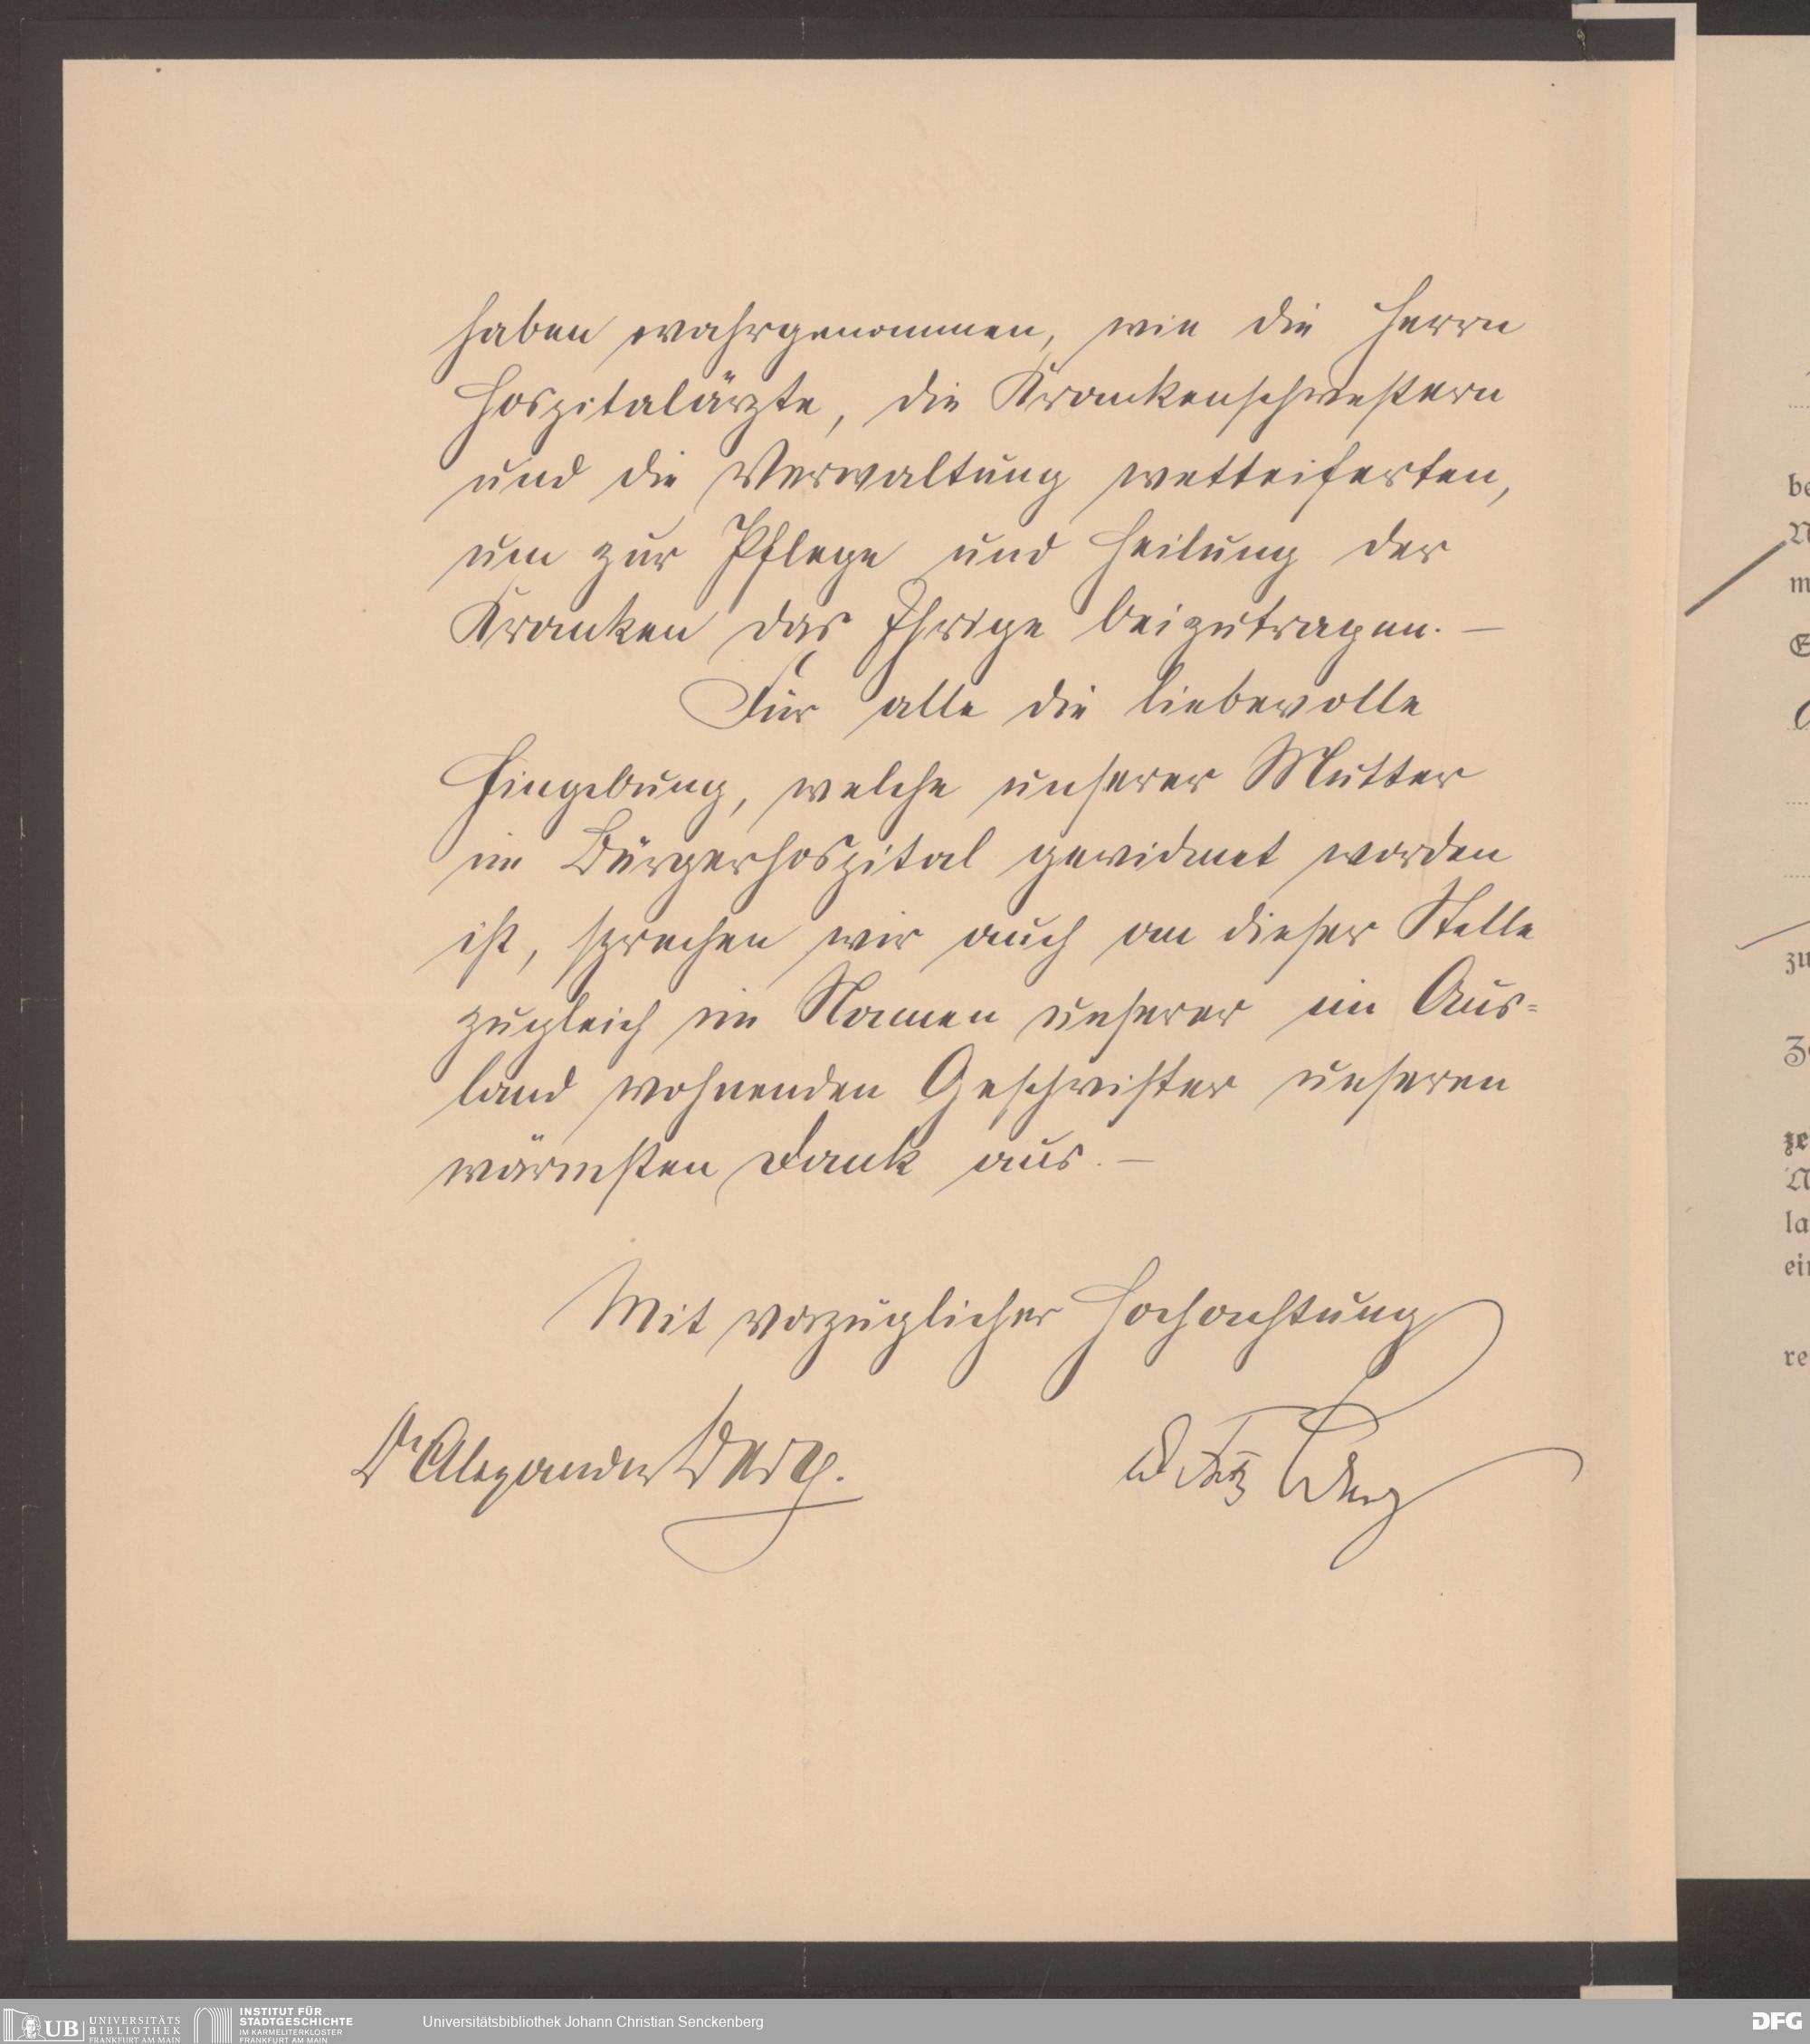 haben wahrgenommen, wie die Herrn
Hospitalärzte, die Krankenschwestern
und die Verwaltung wetteiferten,
um zur Pflege und Heilung der
Kranken das Ihrige beizutragen. —
Für alle die liebevolle
Hingebung, welche unserer Mutter
im Bürgerhospital gewidmet worden
ist, sprechen wir auch an dieser Stelle
zugleich im Namen unserer im Aus-
land wohnenden Geschwister unseren
wärmsten Dank aus. —
Mit vorzüglicher Hochachtung
Dr Alexander Berg.
Dr Fritz Berg
be
m
zu
ze
la
ein
re
UB UNIVERSITÄTS BIBLIOTHEK FRANKFURT AM MAIN
INSTITUT FÜR STADTGESCHICHTE IM KARMELITERKLOSTER FRANKFURT AM MAIN
Universitätsbibliothek Johann Christian Senckenberg
DFG